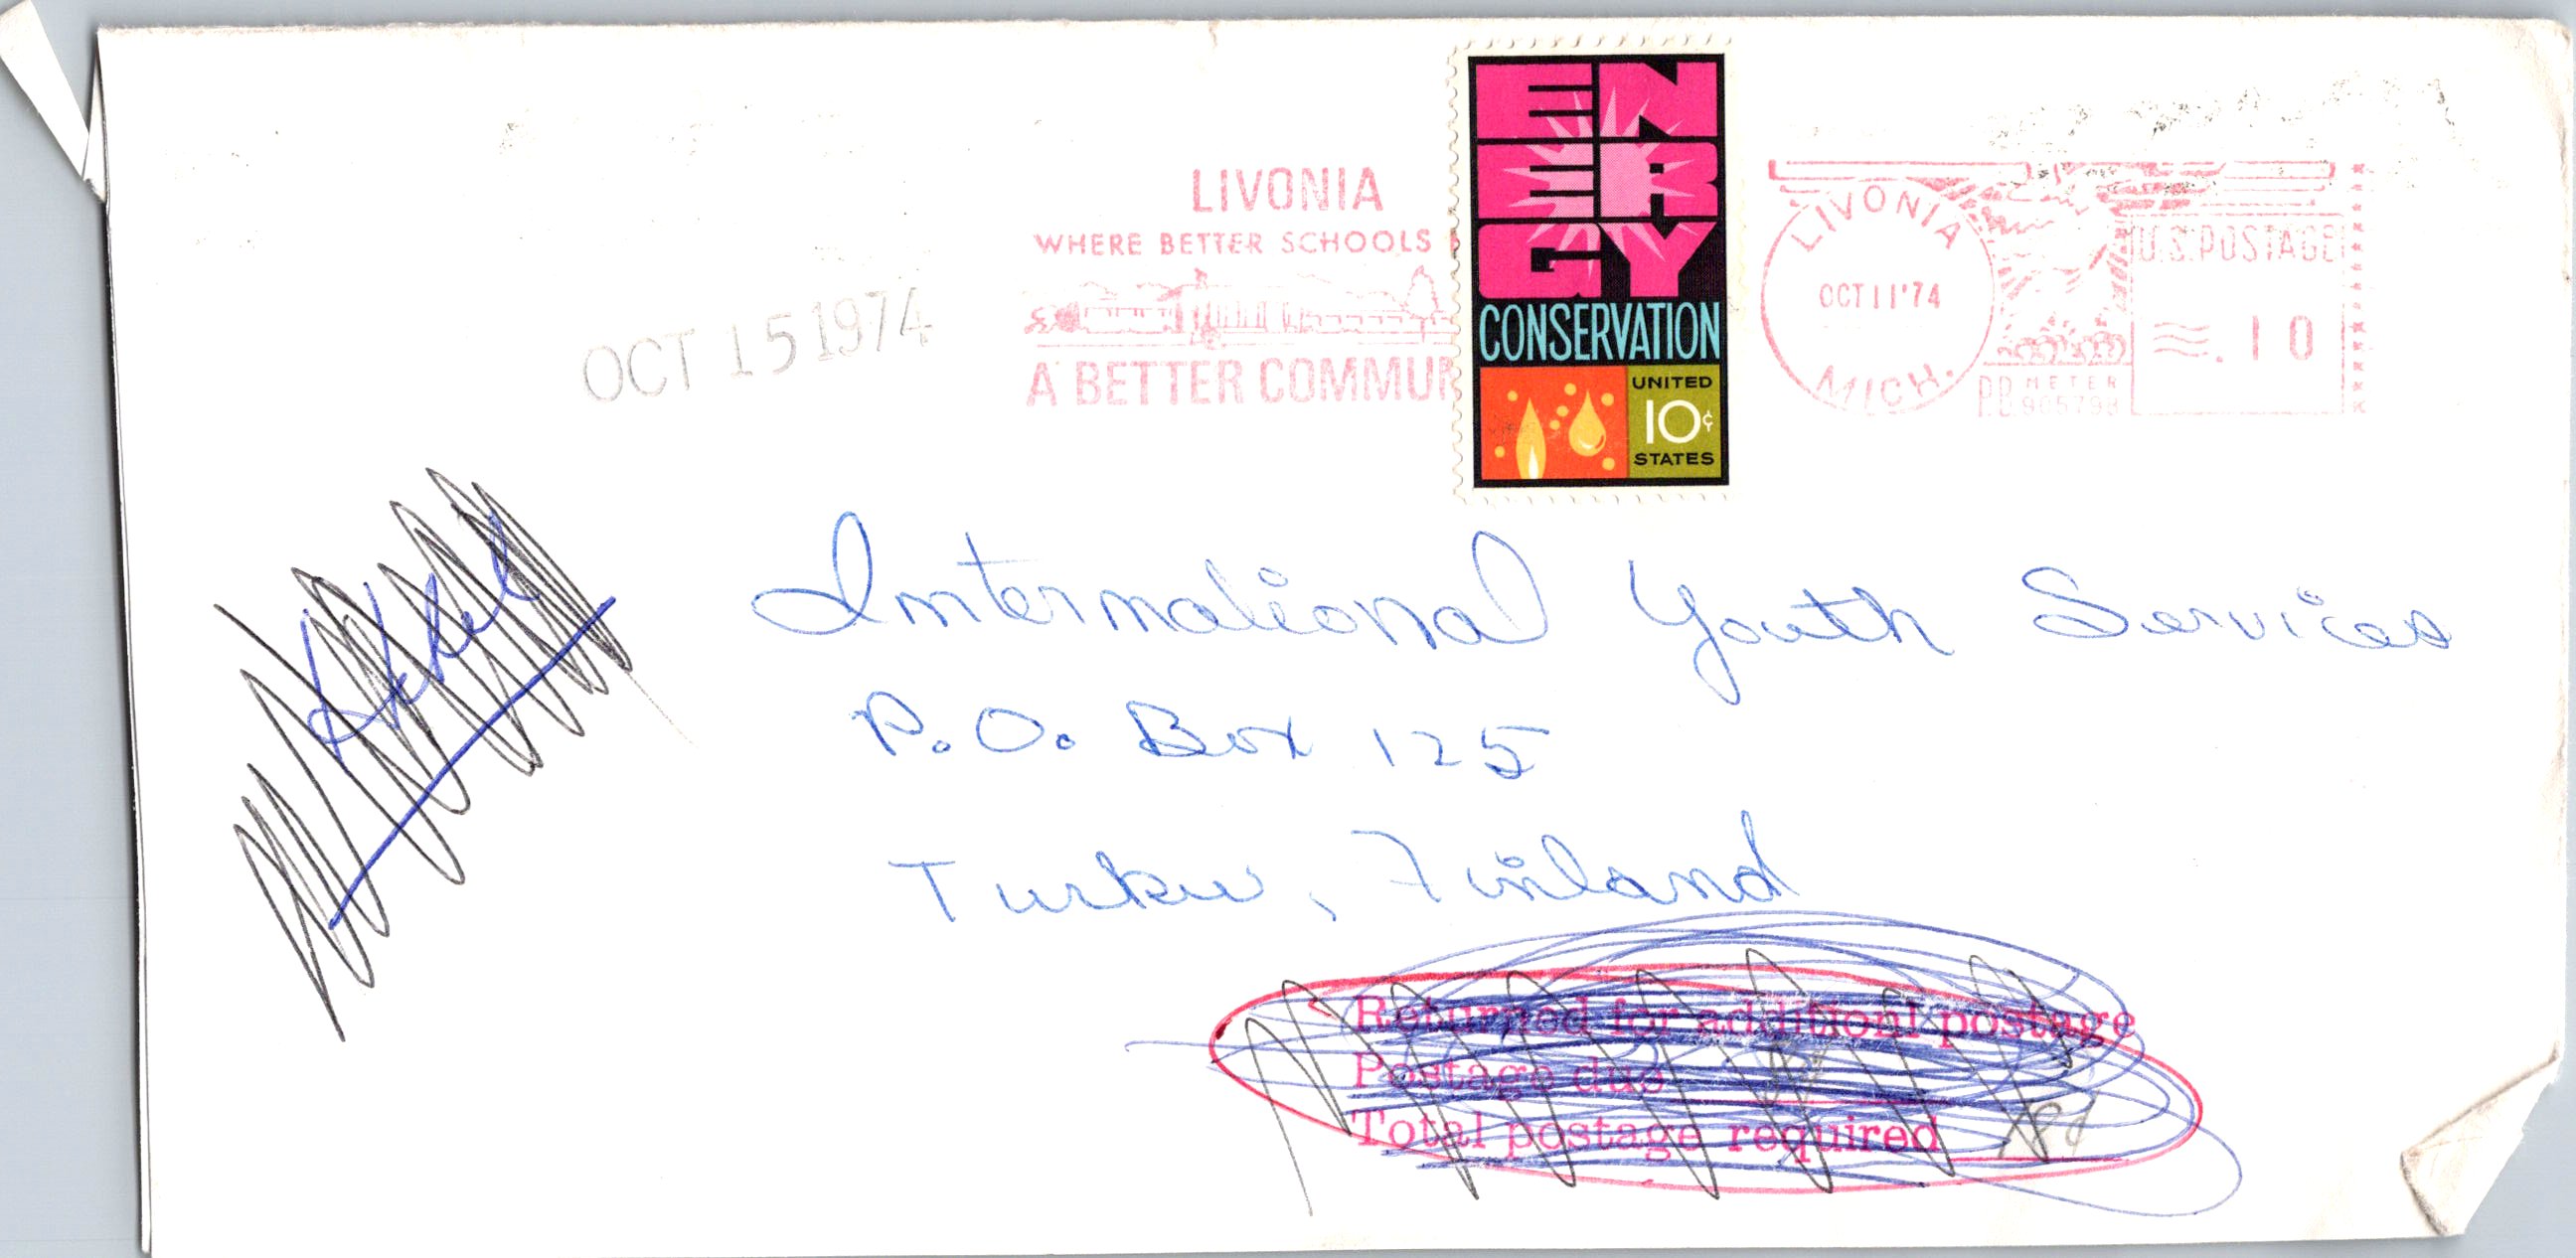 LIVONIA
WHERE BETTER SCHOOLS
A BETTER COMMUN
OCT 15 1974
ENERGY
CONSERVATION
UNITED
10¢
STATES
LIVONIA
OCT 11 '74
MICH.
U.S. POSTAGE
≈.10
P.B. METER
International Youth Services
P.O. Box 125
Turku, Finland
Returned for additionl postage
Postage due
Total postage required